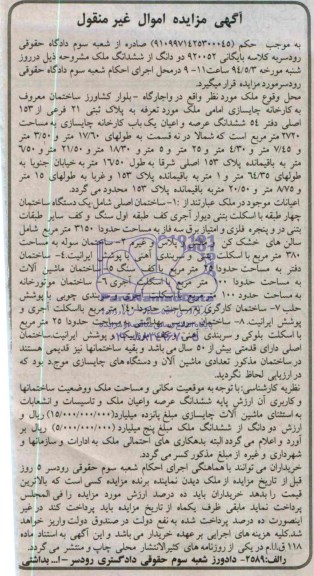 آگهی مزایده اموال غیر منقول
به موجب حکم (۹۱۰۹۹۷۱۴۲۵۳۰۰۰۴۵) صادره از شعبه سوم دادگاه حقوقی
رودسربه کلاسه بایگانی ۹۲۰۰۵۲ دو دانگ از ششدانگ ملک مشروحه ذیل درروز
شنبه مورخه ۹۴/۵/۳ ساعت ۱۱-۹ درمحل اجرای احکام شعبه سوم دادگاه حقوقی
رودسرمورد مزایده قرار میگیرد.
محل وقوع ملک مورد نظر واقع در واجارگاه - بلوار کشاورز ساختمان معروف
به کارخانه چایسازی امامی ملک مورد تعرفه به پلاک ثبتی ۲۱ فرعی از ۱۵۳
اصلی دفتر ۵۴ ششدانگ عرصه و اعیان یک باب کارخانه چایسازی به مساحت
۲۷۲۰ متر مربع است که شمالا در نه قسمت به طولهای ۱۷/۶۰ متر و ۳/۵۰ متر
و ۷/۴۵ متر و ۴/۳۰ متر و ۲۵ متر و ۵ متر و ۱۸/۳۰ متر و ۲۱/۵۰ متر و ۶/۵۰
متر به باقیمانده پلاک ۱۵۳ اصلی شرقا به طول ۱۶/۵۰ متر به خیابان جنوبا به
طولهای ۶۴/۳۵ متر و ۱ متر به باقیمانده پلاک ۱۵۳ و غربا به طولهای ۱۵ متر
و ۸/۷۵ متر و ۲۰/۵۰ متربه باقیمانده پلاک ۱۵۳ محدود می گردد.
اعیانات موجود در ملک عبارتند از :۱- ساختمان اصلی شامل یک دستگاه ساختمان
چهار طبقه با اسکلت بتنی دیوار آجری کف طبقه اول سنگ و کف سایر طبقات
بتنی در و پنجره فلزی و امتیاز برق سه فاز به مساحت حدودا ۳۱۵۰ متر مربع شامل
سالن های خشک کن و غیره ۲- ساختمان سوله به مساحت
۳۸۰ متر مربع با اسکلت و سربندی آهنی با پوشش ایرانیت ۴- ساختمان
دفتر به مساحت حدودا متر مربع با کف سنگ ۵- ساختمان ماشین آلات
به مساحت حدودا متر مربع با اسکلت آجری ۶- ساختمان موتورخانه
به مساحت حدود ۱۰۰ متر مربع سربندی چوبی با پوشش
حلب ۷- ساختمان کارگری به مساحت حدودا ۱۴۰ متر مربع بااسکلت آجری و
پوشش ایرانیت. ۸- ساختمان بهداشتی به مساحت حدودا ۲۵ متر مربع
با اسکلت بلوکی و سربندی آهنی و پوشش ایرانیت.ساختمان
اصلی دارای قدمتی بیش از ۵۰ سال می باشد و بقیه ساختمانها نیز قدیمی هستند
در ساختمان مذکور تعدادی ماشین آلان و دستگاه های چایسازی موجود بود که
در ارزیابی لحاظ نگردید.
نظریه کارشناسی: با توجه به موقعیت مکانی و مساحت ملک ووضعیت ساختمانها
و کاربری آن ارزش پایه ششدانگ عرصه واعیان ملک و تاسیسات و انشعابات
به استثنای ماشین آلات چایسازی مبلغ پانزده میلیارد(۱۵/۰۰۰/۰۰۰/۰۰۰) ریال و
ارزش دو دانگ از ششدانگ ملک مبلغ پنج میلیارد (۵/۰۰۰/۰۰۰/۰۰۰) ریال بر
آورد و اعلام می گردد البته بدهکاری های احتمالی ملک به ادارات و سازمانها و
شهرداری و غیره از مبلغ مذکور کسر می گردد.
خریداران می توانند با هماهنگی اجرای احکام شعبه سوم حقوقی رودسر ۵ روز
قبل از تاریخ مزایده از ملک دیدن نمایند برنده مزایده کسی است که بالاترین
قیمت را بدهد خریداران باید ده درصد ارزش مورد مزایده را فی المجلس
پرداخت نماید مابقی ظرف یکماه از تاریخ مزایده باید پرداخت کند در غیر
اینصورت ده درصد پرداخت شده به نفع دولت در صندوق دولت واریز خواهد
شد.کلیه هزینه های اجرایی بر عهده خریدار می باشد و این آگهی به استناد ماده
۱۱۸ ق.ا.ا.م در یکی از روزنامه های کثیرالانتشار محلی چاپ و منتشر می گردد.
رالف: ۲۵۸۹- دادورز شعبه سوم حقوقی دادگستری رودسر - ا... بداشتی